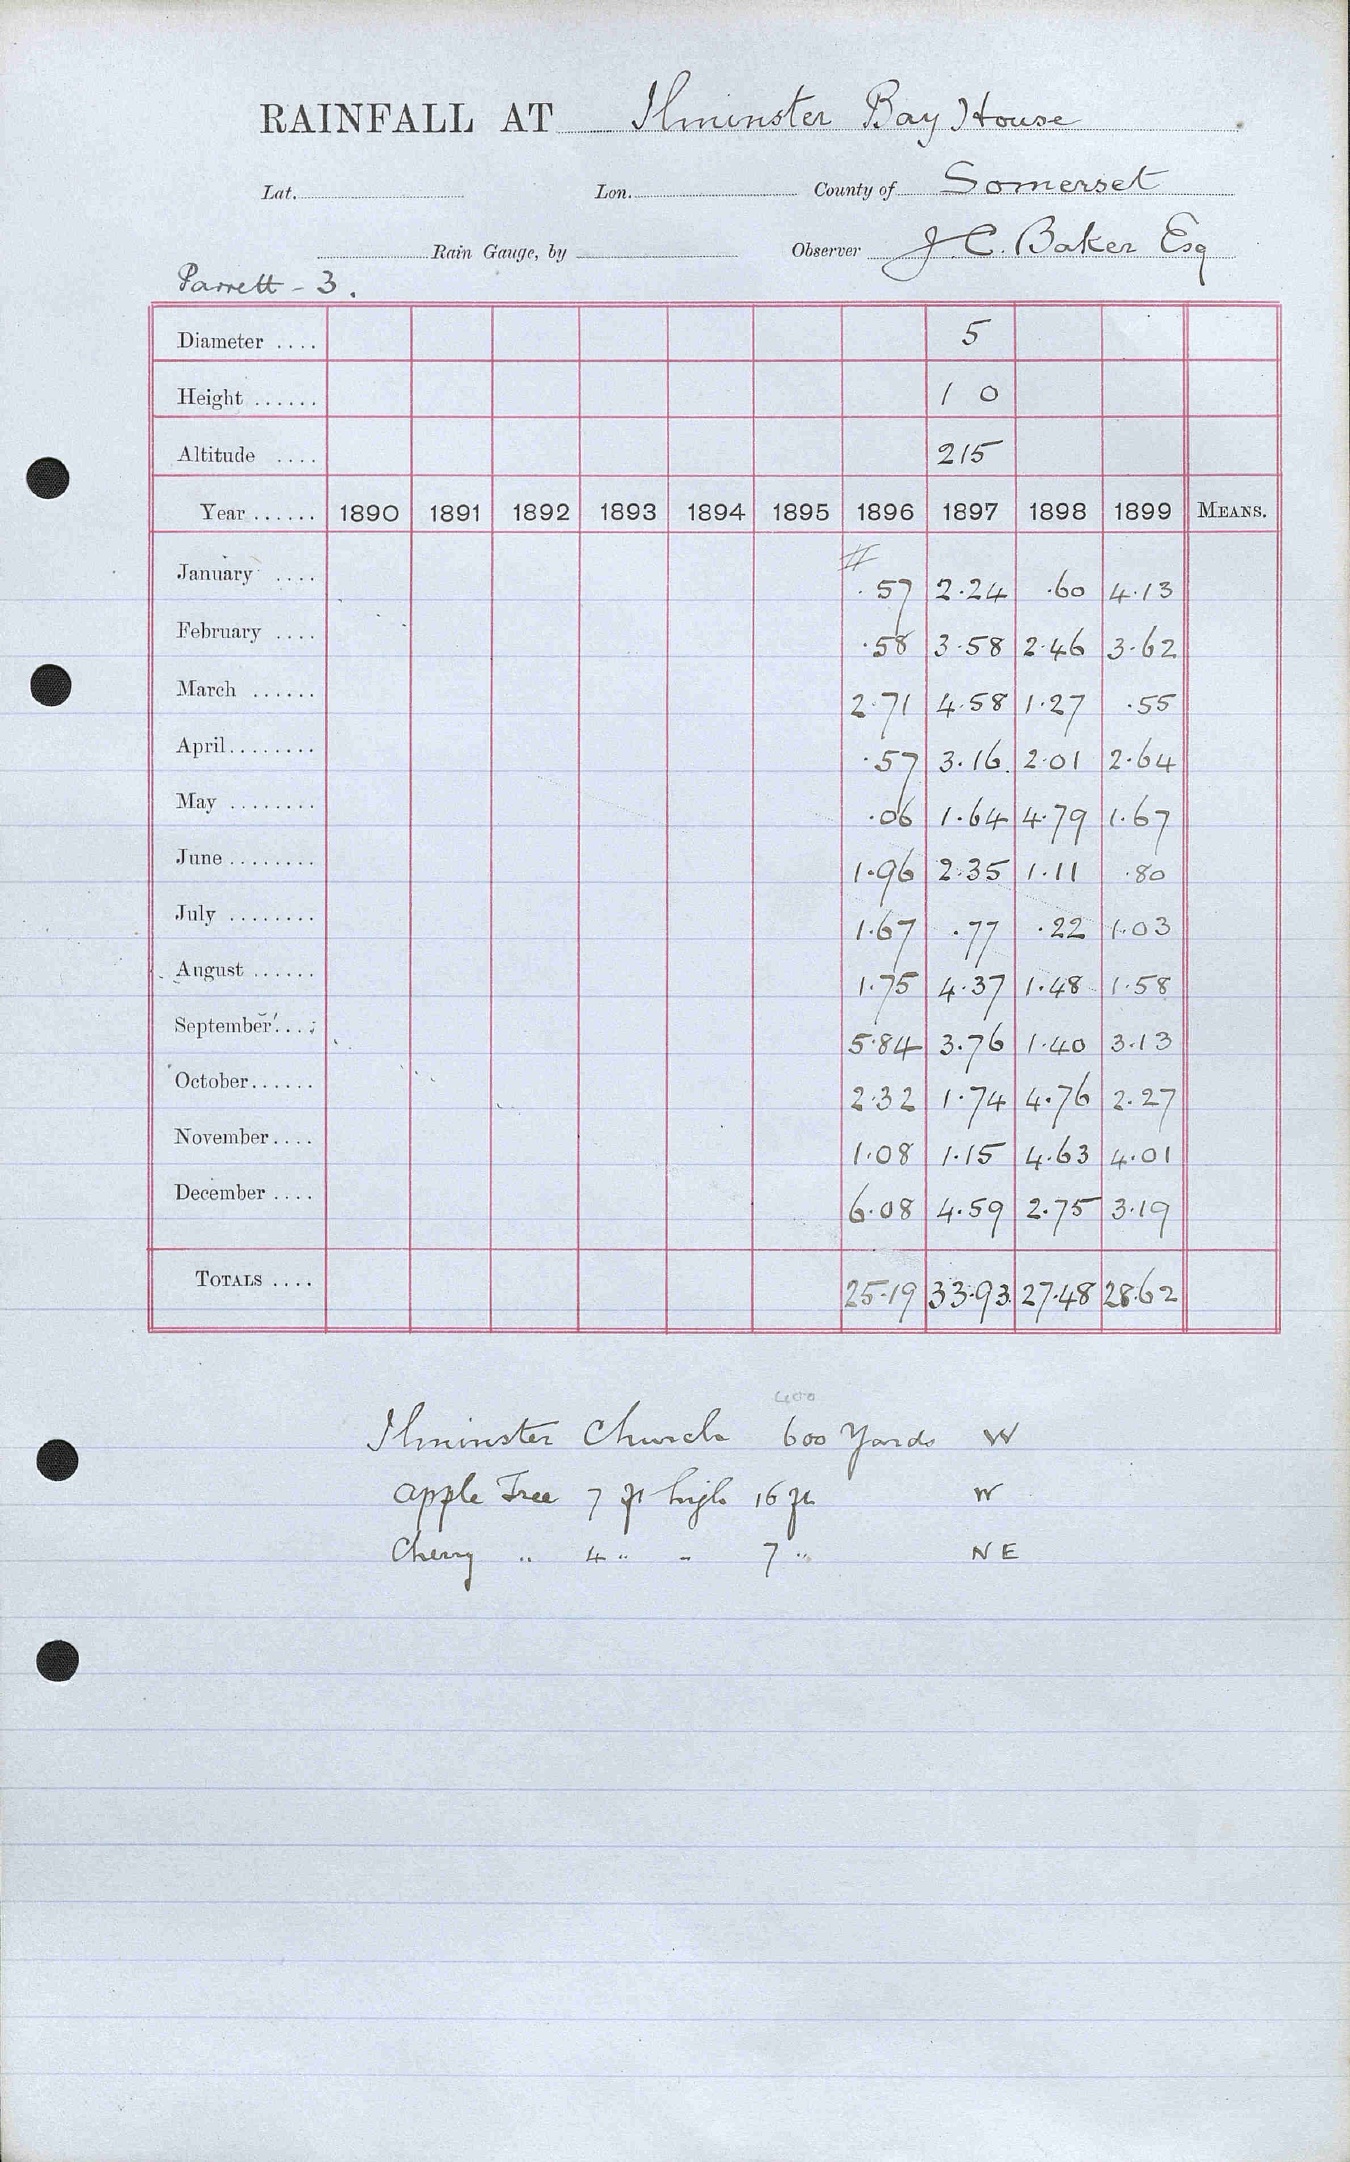 RAINFALL AT Ilminster Bay House
Lat. Lon. County of Somerset
Rain Gauge, by Observer J. C. Baker Esq
Parrett - 3.
Diameter .... 5
Height ...... 1 0
Altitude .... 215
Year ...... 1890 1891 1892 1893 1894 1895 1896 1897 1898 1899 MEANS.
January .... .57 2.24 .60 4.13
February .... .58 3.58 2.46 3.62
March ...... 2.71 4.58 1.27 .55
April ........ .57 3.16 2.01 2.64
May ........ .06 1.64 4.79 1.67
June ........ 1.96 2.35 1.11 .80
July ........ 1.67 .77 .22 1.03
August ...... 1.75 4.37 1.48 1.58
September .... 5.84 3.76 1.40 3.13
October ...... 2.32 1.74 4.76 2.27
November .... 1.08 1.15 4.63 4.01
December .... 6.08 4.59 2.75 3.19
TOTALS .... 25.19 33.93 27.48 28.62
400
Ilminster Church 600 Yards W
apple Tree 7 ft high 16 ft W
Cherry " 4 " " 7 " NE